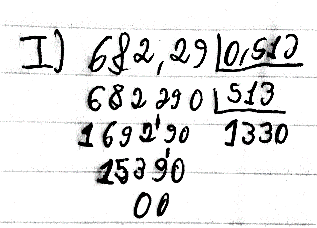 I) 682,29 | 0,513
682290 | 513
169290 1330
15390
00